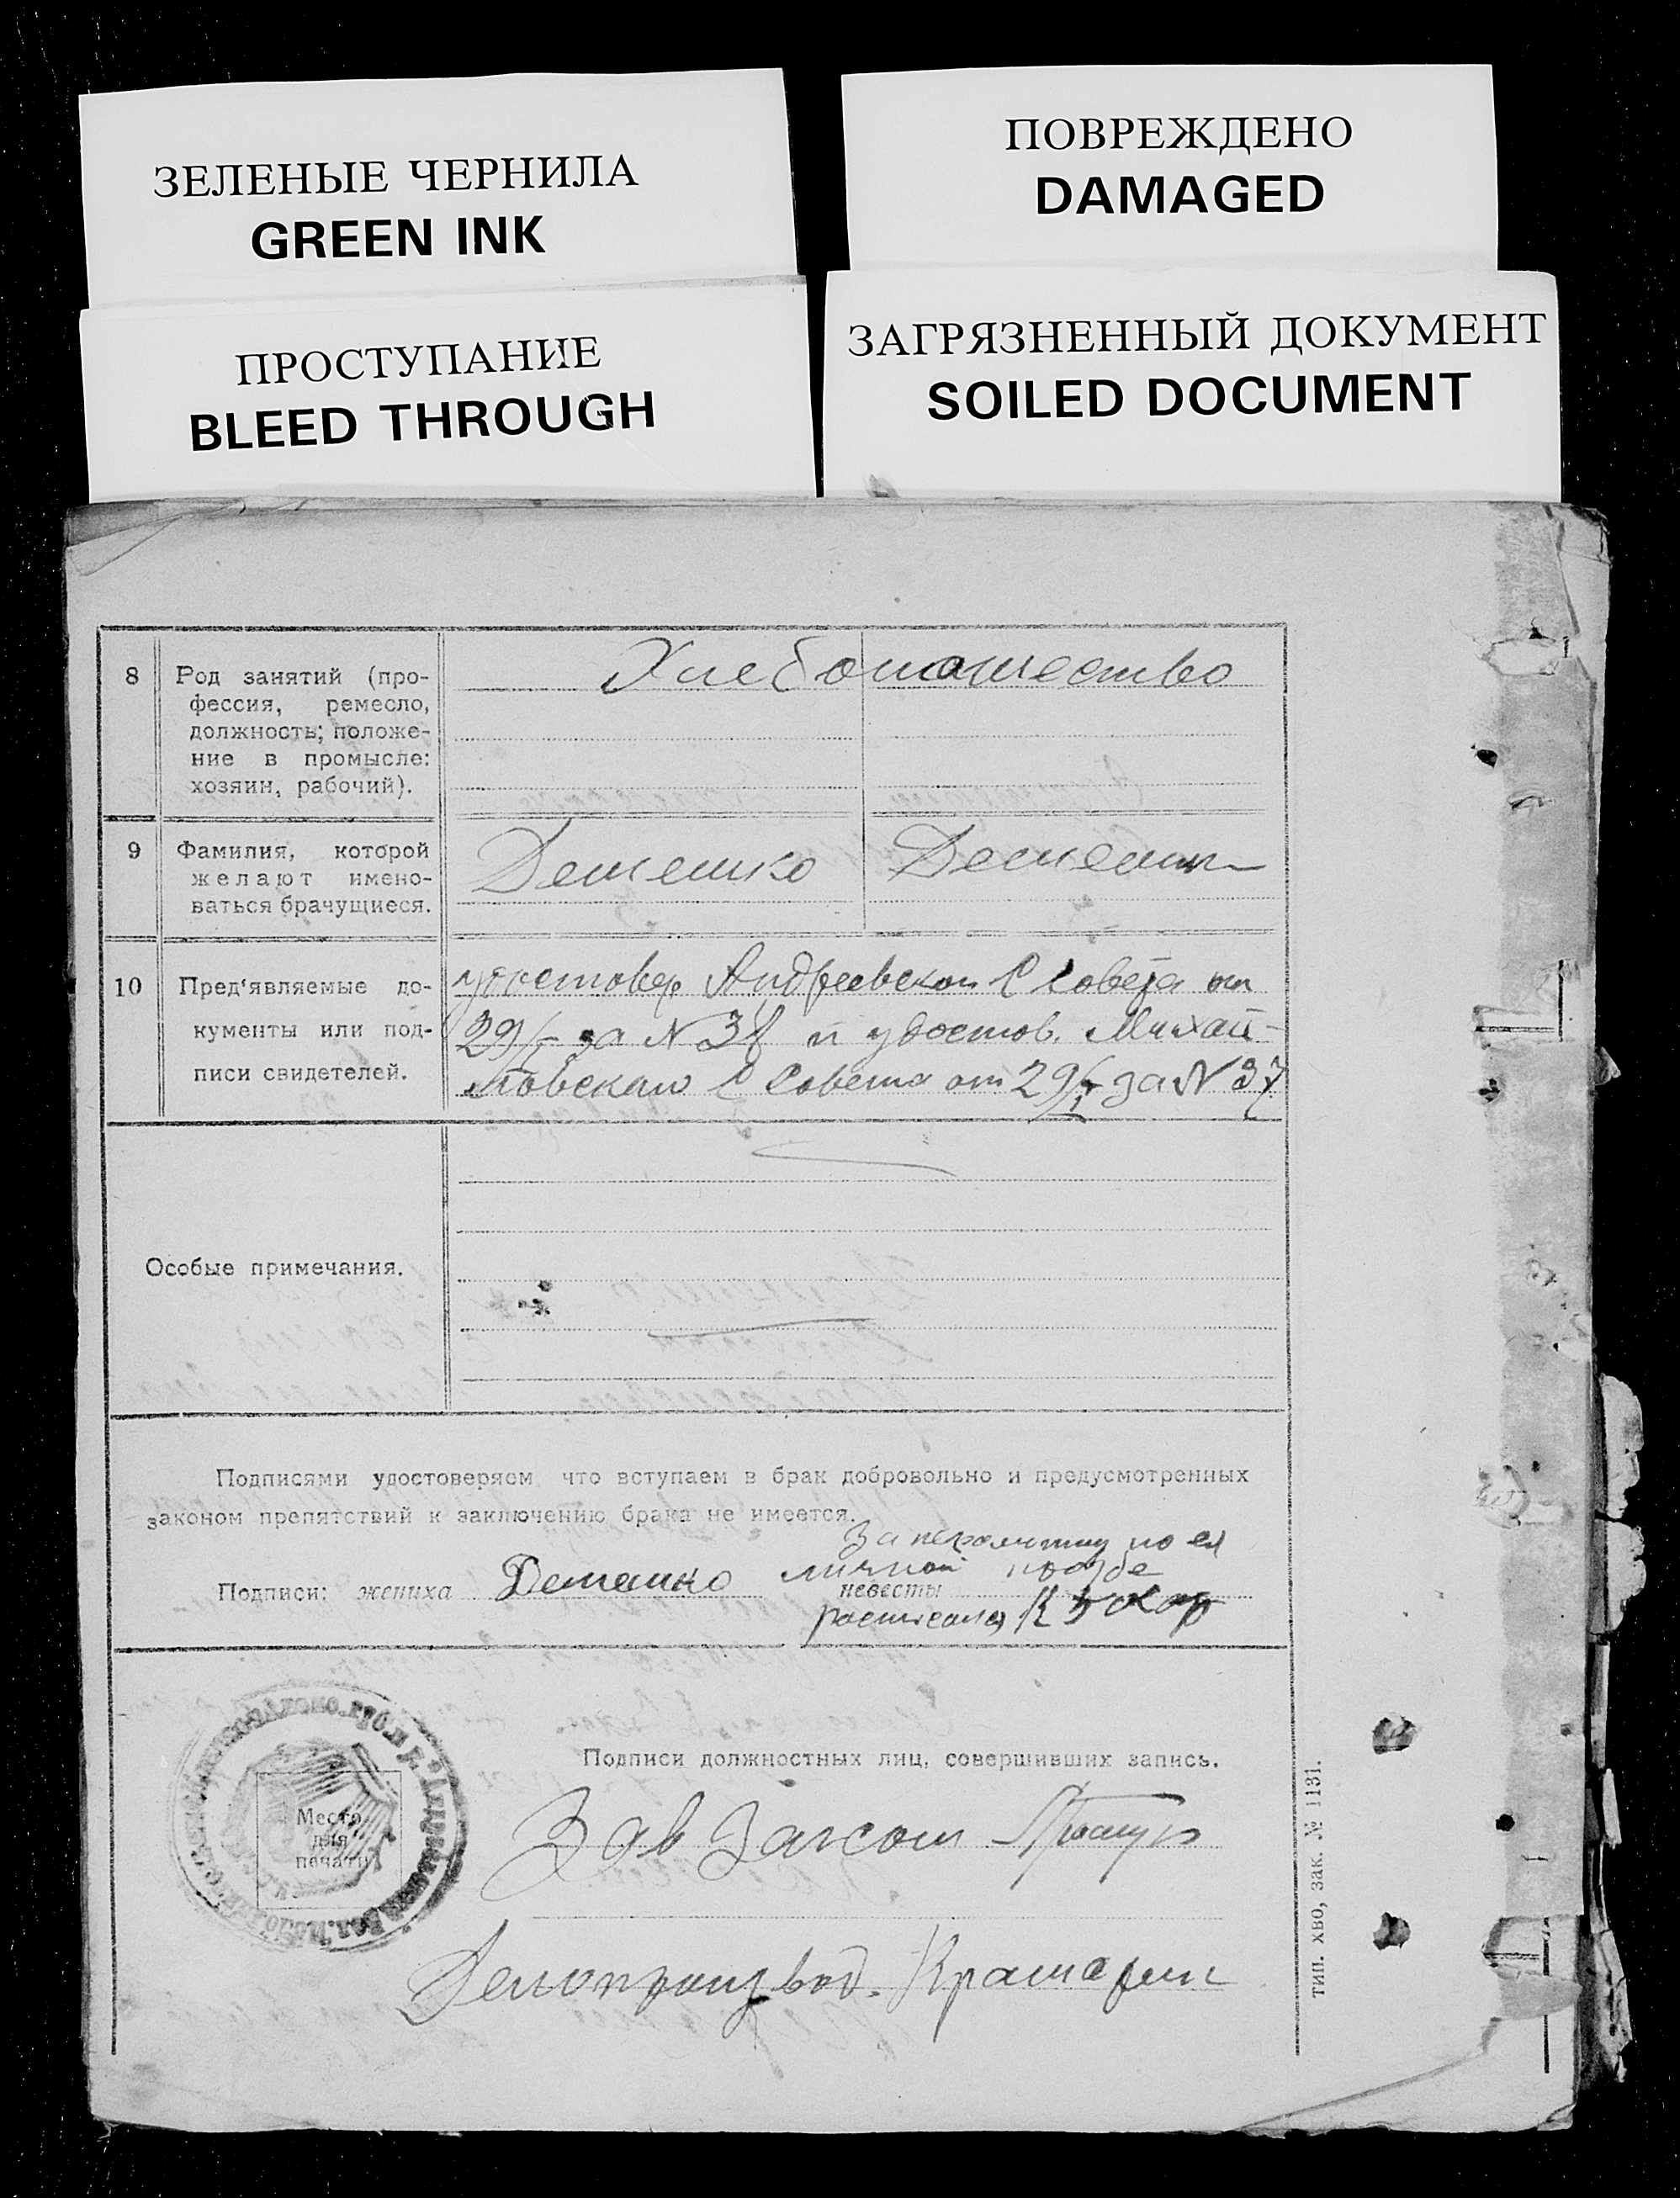 ЗЕЛЕНЫЕ ЧЕРНИЛА
GREEN INK
ПОВРЕЖДЕНО
DAMAGED
ПРОСТУПАНИЕ
BLEED THROUGH
ЗАГРЯЗНЕННЫЙ ДОКУМЕНТ
SOILED DOCUMENT
8 Род занятий (про-
фессия, ремесло,
должность; положе-
ние в промысле:
хозяин, рабочий).
Хлебопашество
9 Фамилия, которой
желают имено-
ваться брачущиеся.
10 Пред'являемые до-
кументы или под-
писи свидетелей.
удостовер Андреевском С Совета от
29/I за N 38 и удостов. Михай-
ловском С Совета от 29/I за N 37
Особые примечания.
Подписями удостоверяем что вступаем в брак добровольно и предусмотренных
законом препятствий к заключению брака не имеется.
За неграмотную по ея
личной прозбе
Подписи: жениха невесты
расписался
Место
для
печати
Подписи должностных лиц, совершивших запись.
Зав Загсом
Делопроизвод.
тип. ХВО, зак. № 1131.